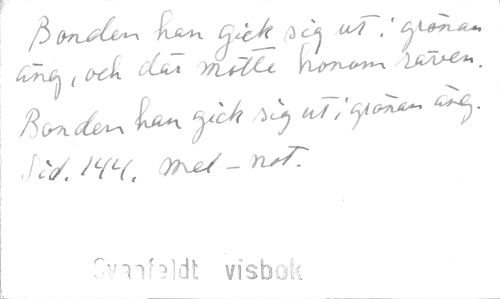 Bonden han gick sig ut i grönan
äng, och där mötte honom räven.
Bonden han gick sig ut i grönan äng.
Sid. 144. mel-not.
Svanfeldt visbok